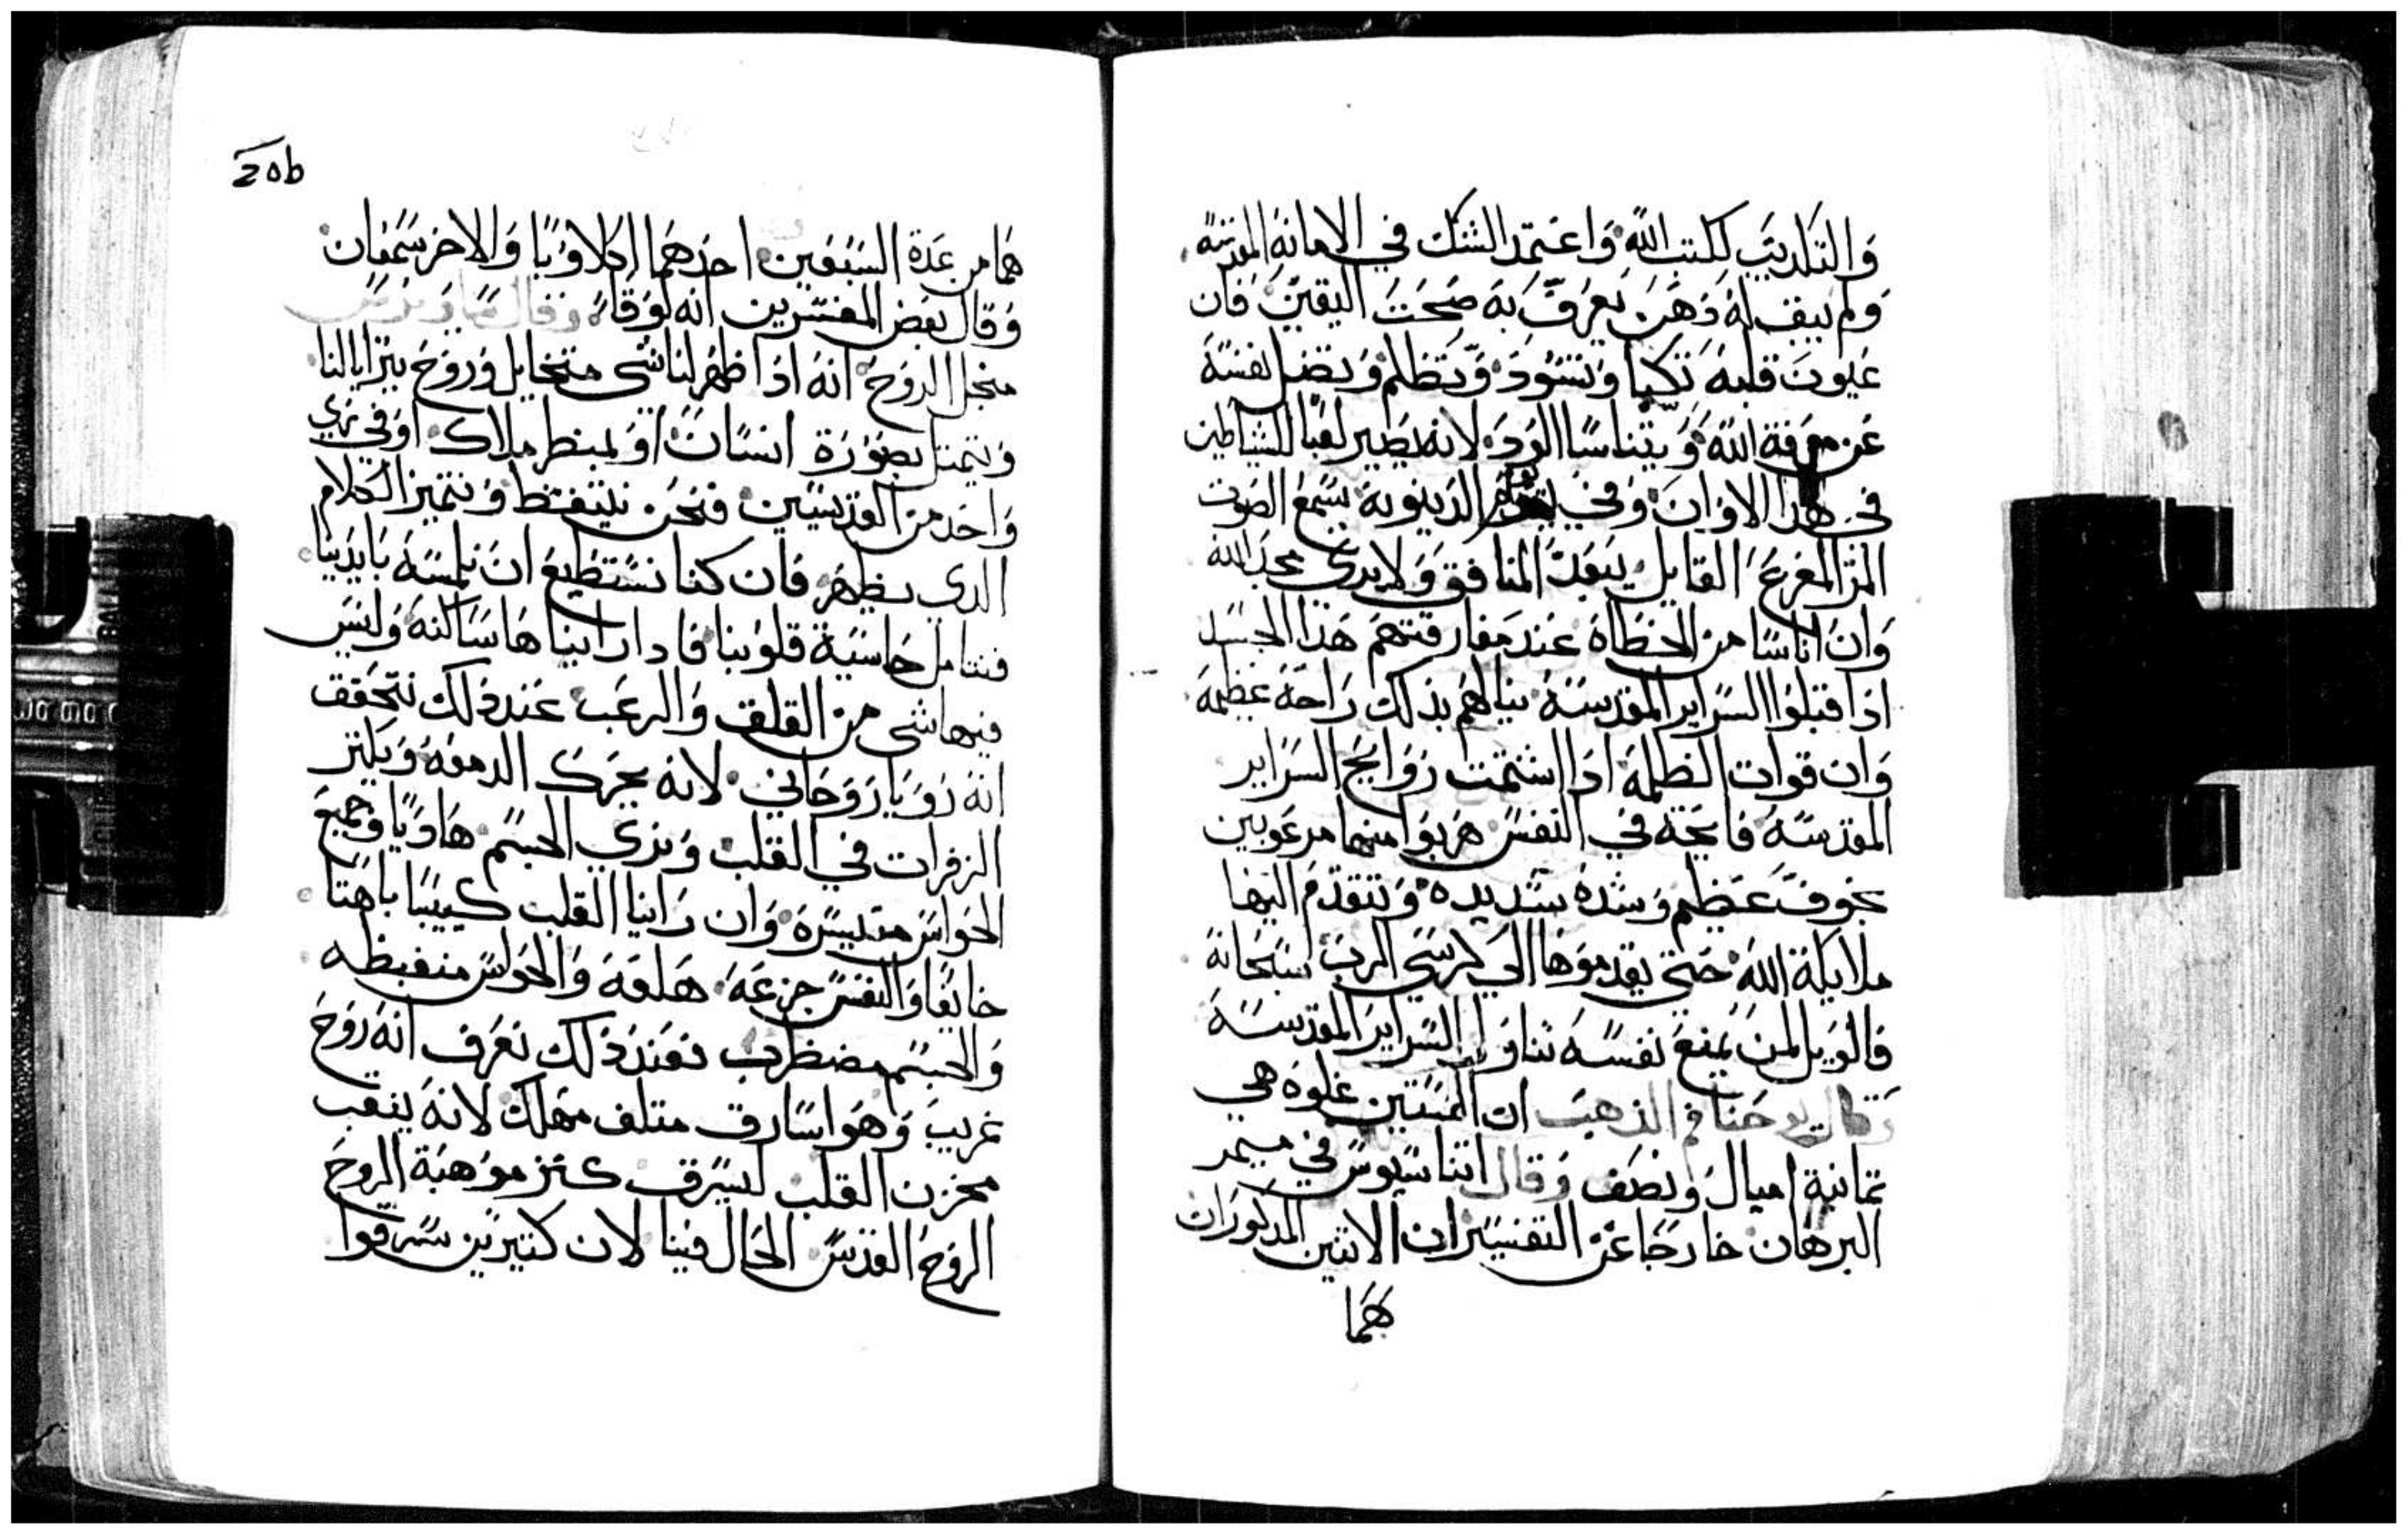 والتكديب لكتب الله واعتمد الشك في الامانه المقدسه
ولم يبق له دهن يعرف به صحت اليقين فان
عيون قلبه تكبا وتسود وتظلم وتضل نفسه
عن معرفة الله ويتناسا الرد لانه يصير لعبا للشياطين
في هدا الاوان وفي الدينونه يسمع الصوت
المر المفزع القايل يبعد المنافق ولا يرى مجد الله
وان اناسا من الخطاه عند مفارقتهم هدا الجسد
ادا قبلوا السراير المقدسه ينالهم بذلك راحه عظيمه
وان قوات الظلمه ادا اشتمت روايح السراير
المقدسه فايحه في النفس هربوا منهما مرعوبين
بخوف عظيم وشده شديده وتتقدم اليها
ملايكة الله حتي يقدموها الي كرسي الرب سبحانه
فالويل لمن يمنع نفسه تناول السراير المقدسه
وقال يوحنا فم الذهب ان الستين غلوه هي
تمانية اميال ونصف وقال اتناسيوس في ميمر
البرهان خارجا عن التفسيران الاتنين المدكوران
هما
20b
هما من عدة السبعين احدهما اكلاوبا والاخر سمعان
وقال بعض المفسرين انه لوقا وقال
منجل الروح انه ادا ظهر لنا شي متخايل وروح يترايا لنا
ويتمتل بصورة انسان او بمنظر ملاك او في زي
واحد من القديسين فنحن نتيقظ ونتميز الكلام
الدي يظهر فان كنا نستطيع ان نلمسه بايدينا
فنتامل حاسية قلوبنا فادا راينا ها ساكنه وليس
فيها شي من القلق والرعب عند ذلك نتحقق
انه رويا روحاني لانه يحرك الدموع ويكتر
الزفرات في القلب ونري الجسم هاديا وجميع
الحواس متيسره وان راينا القلب كييبا باهتا
خايفا والنفس جزعه هلعه والحواس منغبظه
والجسم مضطرب فعند ذلك نعرف انه روح
غريب وهو اسارق متلف مهلك لانه ينقب
مخزن القلب ليسرق كنز موهبة الروح
الروح القدس الحال فينا لان كتيرين سرقوا